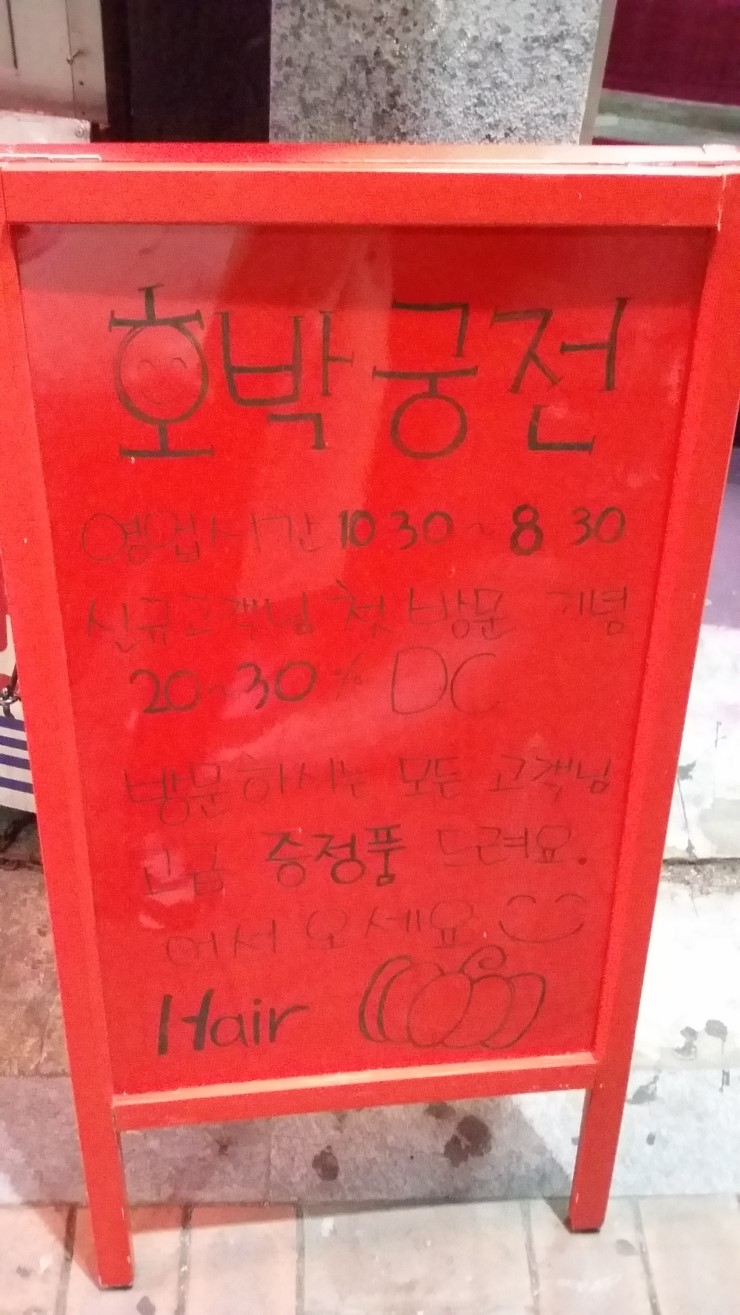 호박궁전
영업시간 10 30 ~ 8 30
신규고객님 첫 방문 기념
20~30% DC
방문하시는 모든 고객님
고급 증정품 드려요.
어서 오세요
Hair